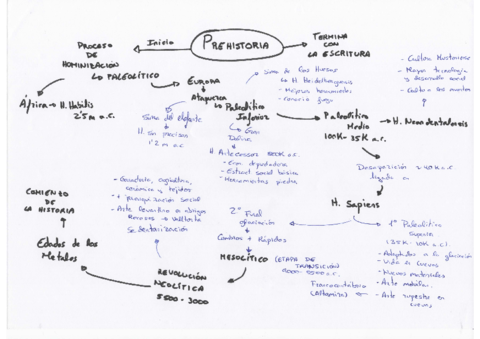 PROCESO
DE
HOMINIZACIÓN
Inicio
PREHISTORIA
TERMINA
CON
LA ESCRITURA
PALEOLÍTICO
EUROPA
Atapuerca
África
H. Habilis
2'5 m a.c.
Sima del elefante
H. Sin precisar
1'2 m a.c.
Sima de los Huesos
H. Heidelbergensis
- Mejores herramientas
- conocía fuego
Paleolítico
Inferior
Gran
Dolina
H. Antecessor 800K a.c.
- Gran depredadora
- Estruct social básica
- Herramientas piedra
Paleolítico
Medio
100K - 35K a.c.
H. Neandertalensis
- Cultura Musteriense
- Mayor tecnología
y desarrollo social
- Cultura los muertos
Desaparición ~40K a.c.
H. Sapiens
1º Paleolítico
Superior
(35K - 10K a.c.)
- Adaptados a la glaciación
- Vida en cuevas
- Nuevos materiales
- Arte mobiliar
- Arte rupestre en
cuevas
Francocantábrico
(Altamira)
2º Final
glaciación
Cambios + Rápidos
MESOLÍTICO
(ETAPA DE
TRANSICIÓN
REVOLUCIÓN
NEOLÍTICA
5500 - 3000
- Ganadería, agricultura,
cerámica y tejidos
- + organización social
- Arte levantino o abrigos
Rocosos
Valltorta
Sedentarización
Edades de los
Metales
COMIENZO
DE
LA HISTORIA